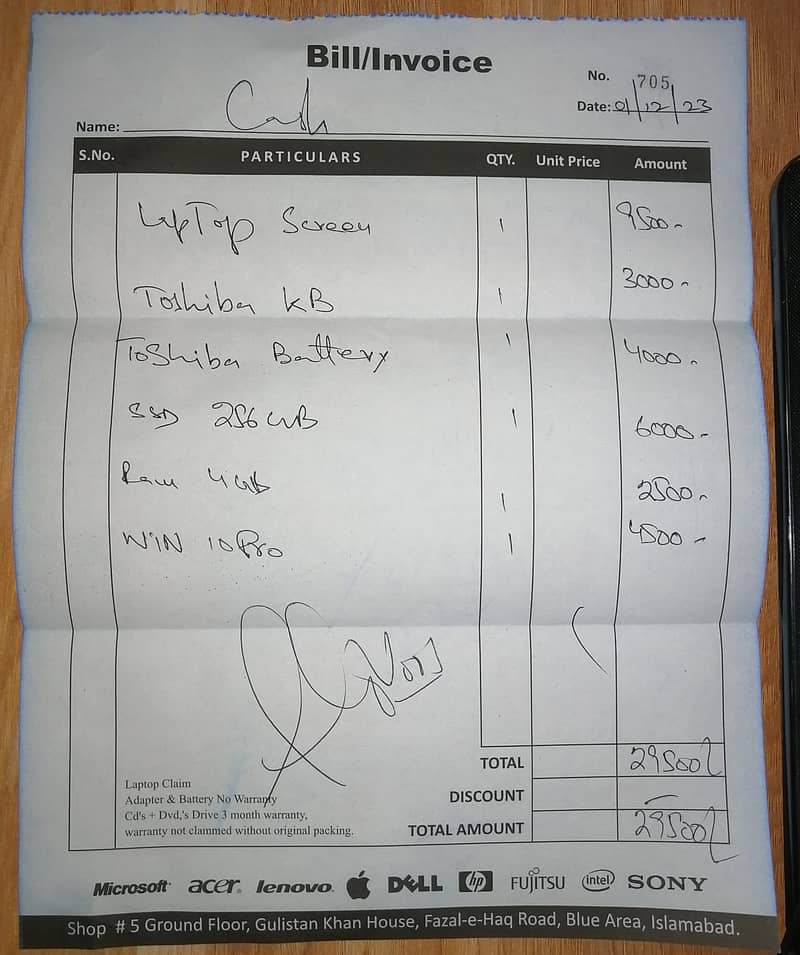 Bill/Invoice
No. 705
Date: 01/12/23
Name: Cash
S.No. PARTICULARS QTY. Unit Price Amount
LapTop Screen 1 9500-
Toshiba KB 1 3000-
Toshiba Battery 1 4000-
SSD 256GB 1 6000-
Ram 4GB 1 2500-
WIN 10 Pro 1 4500-
TOTAL 29500/
Laptop Claim
Adapter & Battery No Warranty
DISCOUNT -
Cd's + Dvd,'s Drive 3 month warranty,
warranty not clammed without original packing.
TOTAL AMOUNT 29500/
Microsoft acer lenovo DELL hp FUJITSU intel SONY
Shop # 5 Ground Floor, Gulistan Khan House, Fazal-e-Haq Road, Blue Area, Islamabad.